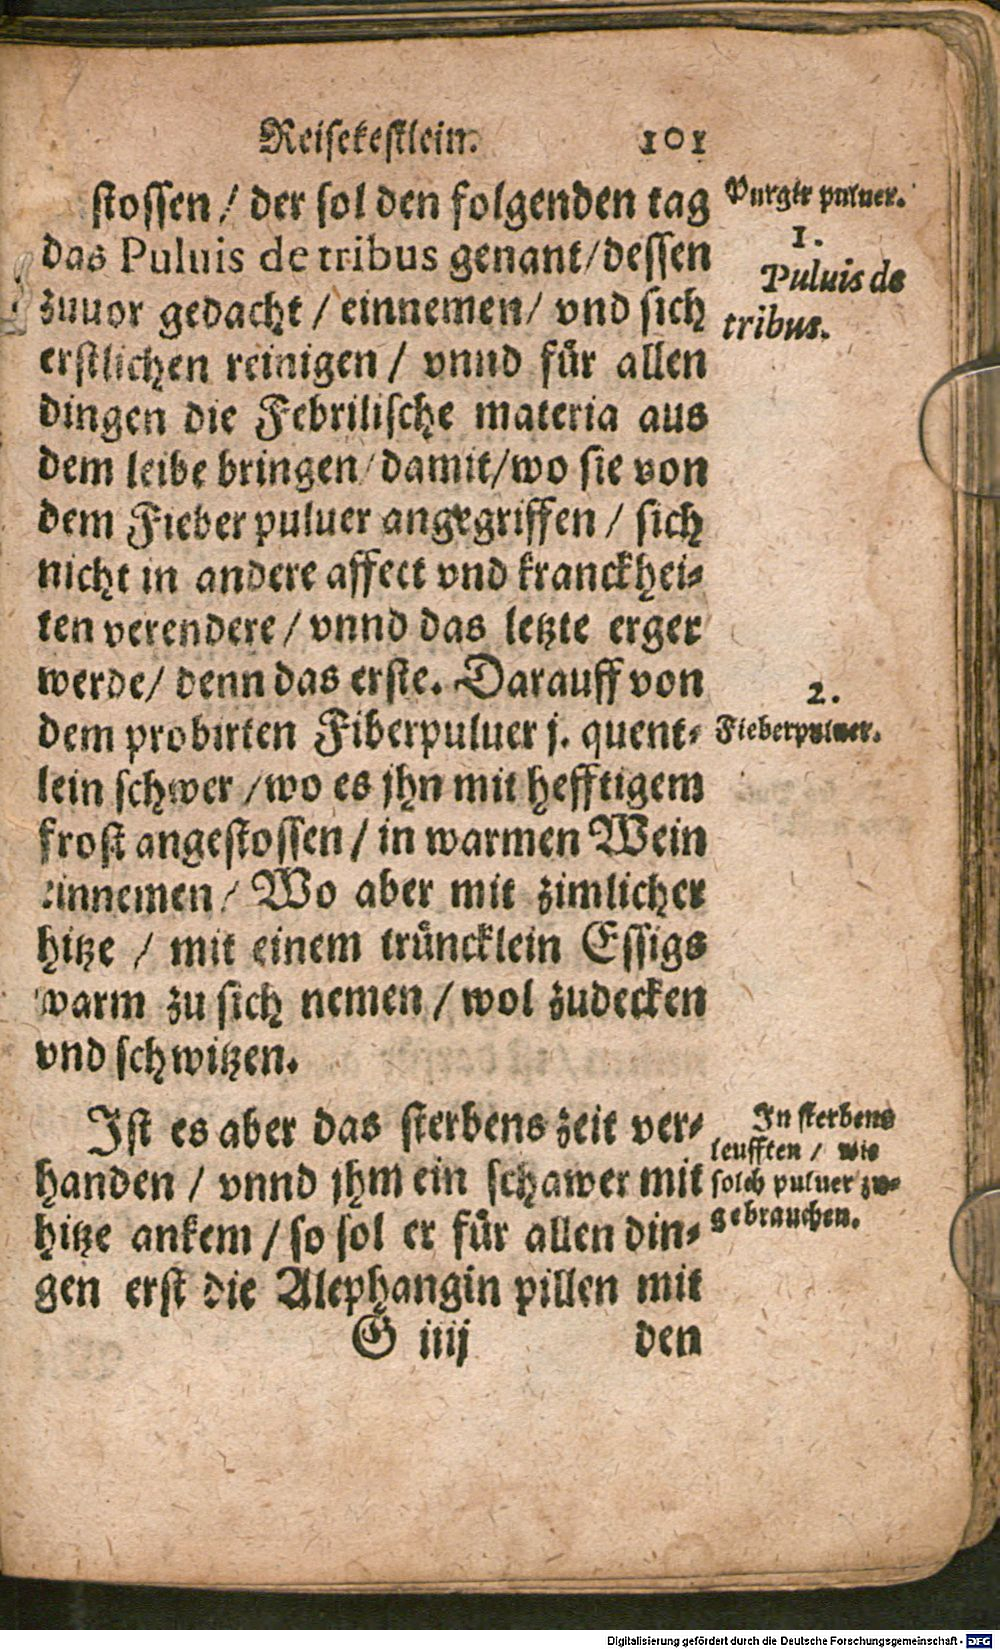 Reisekestlein. 101
stossen / der sol den folgenden tag
das Puluis de tribus genant / dessen
zuuor gedacht / einnemen / vnd sich
erstlichen reinigen / vnnd für allen
dingen die Febrilische materia aus
dem leibe bringen / damit / wo sie von
dem Fieber puluer angegriffen / sich
nicht in andere affect vnd kranckhei-
ten verendere / vnnd das letzte erger
werde / denn das erste. Darauff von
dem probirten Fiberpuluer j. quent-
lein schwer / wo es jhn mit hefftigem
frost angestossen / in warmen Wein
einnemen / Wo aber mit zimlicher
hitze / mit einem trüncklein Essigs
warm zu sich nemen / wol zudecken
vnd schwitzen.
Ist es aber das sterbens zeit ver-
handen / vnnd jhm ein schawer mit
hitze ankem / so sol er für allen din-
gen erst die Alephangin pillen mit
G iiij den
Purgir puluer.
1.
Puluis de
tribus.
2.
Fieberpuluer.
In sterbens
leufften / wie
solch puluer zu-
gebrauchen.
Digitalisierung gefördert durch die Deutsche Forschungsgemeinschaft - DFG